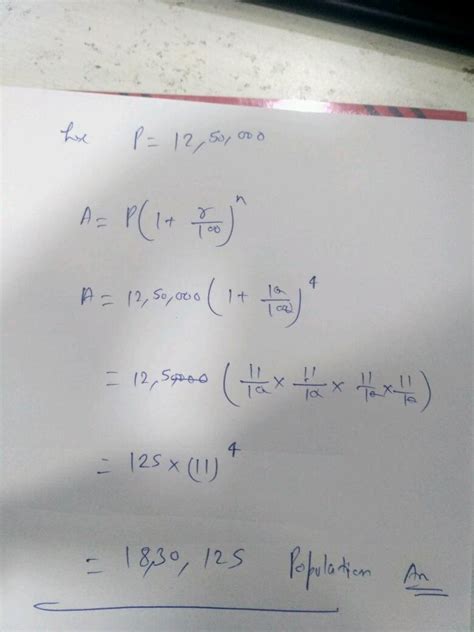 here P = 12,50,000
A = P(1 + r/100)^n
A = 12,50,000 (1 + 10/100)^4
= 12,50000 (11/10 × 11/10 × 11/10 × 11/10)
= 125 × (11)^4
= 1830,125 Population An